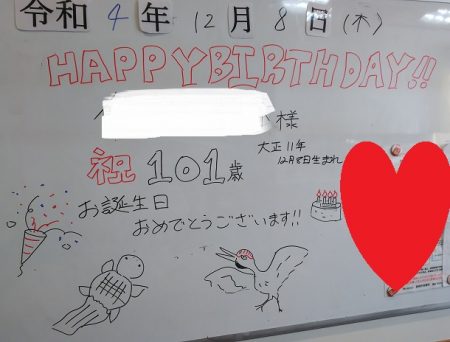 令和4年12月8日(木)
HAPPY BIRTHDAY!!
様
大正11年
12月8日生まれ
祝 101歳
お誕生日
おめでとうございます!!